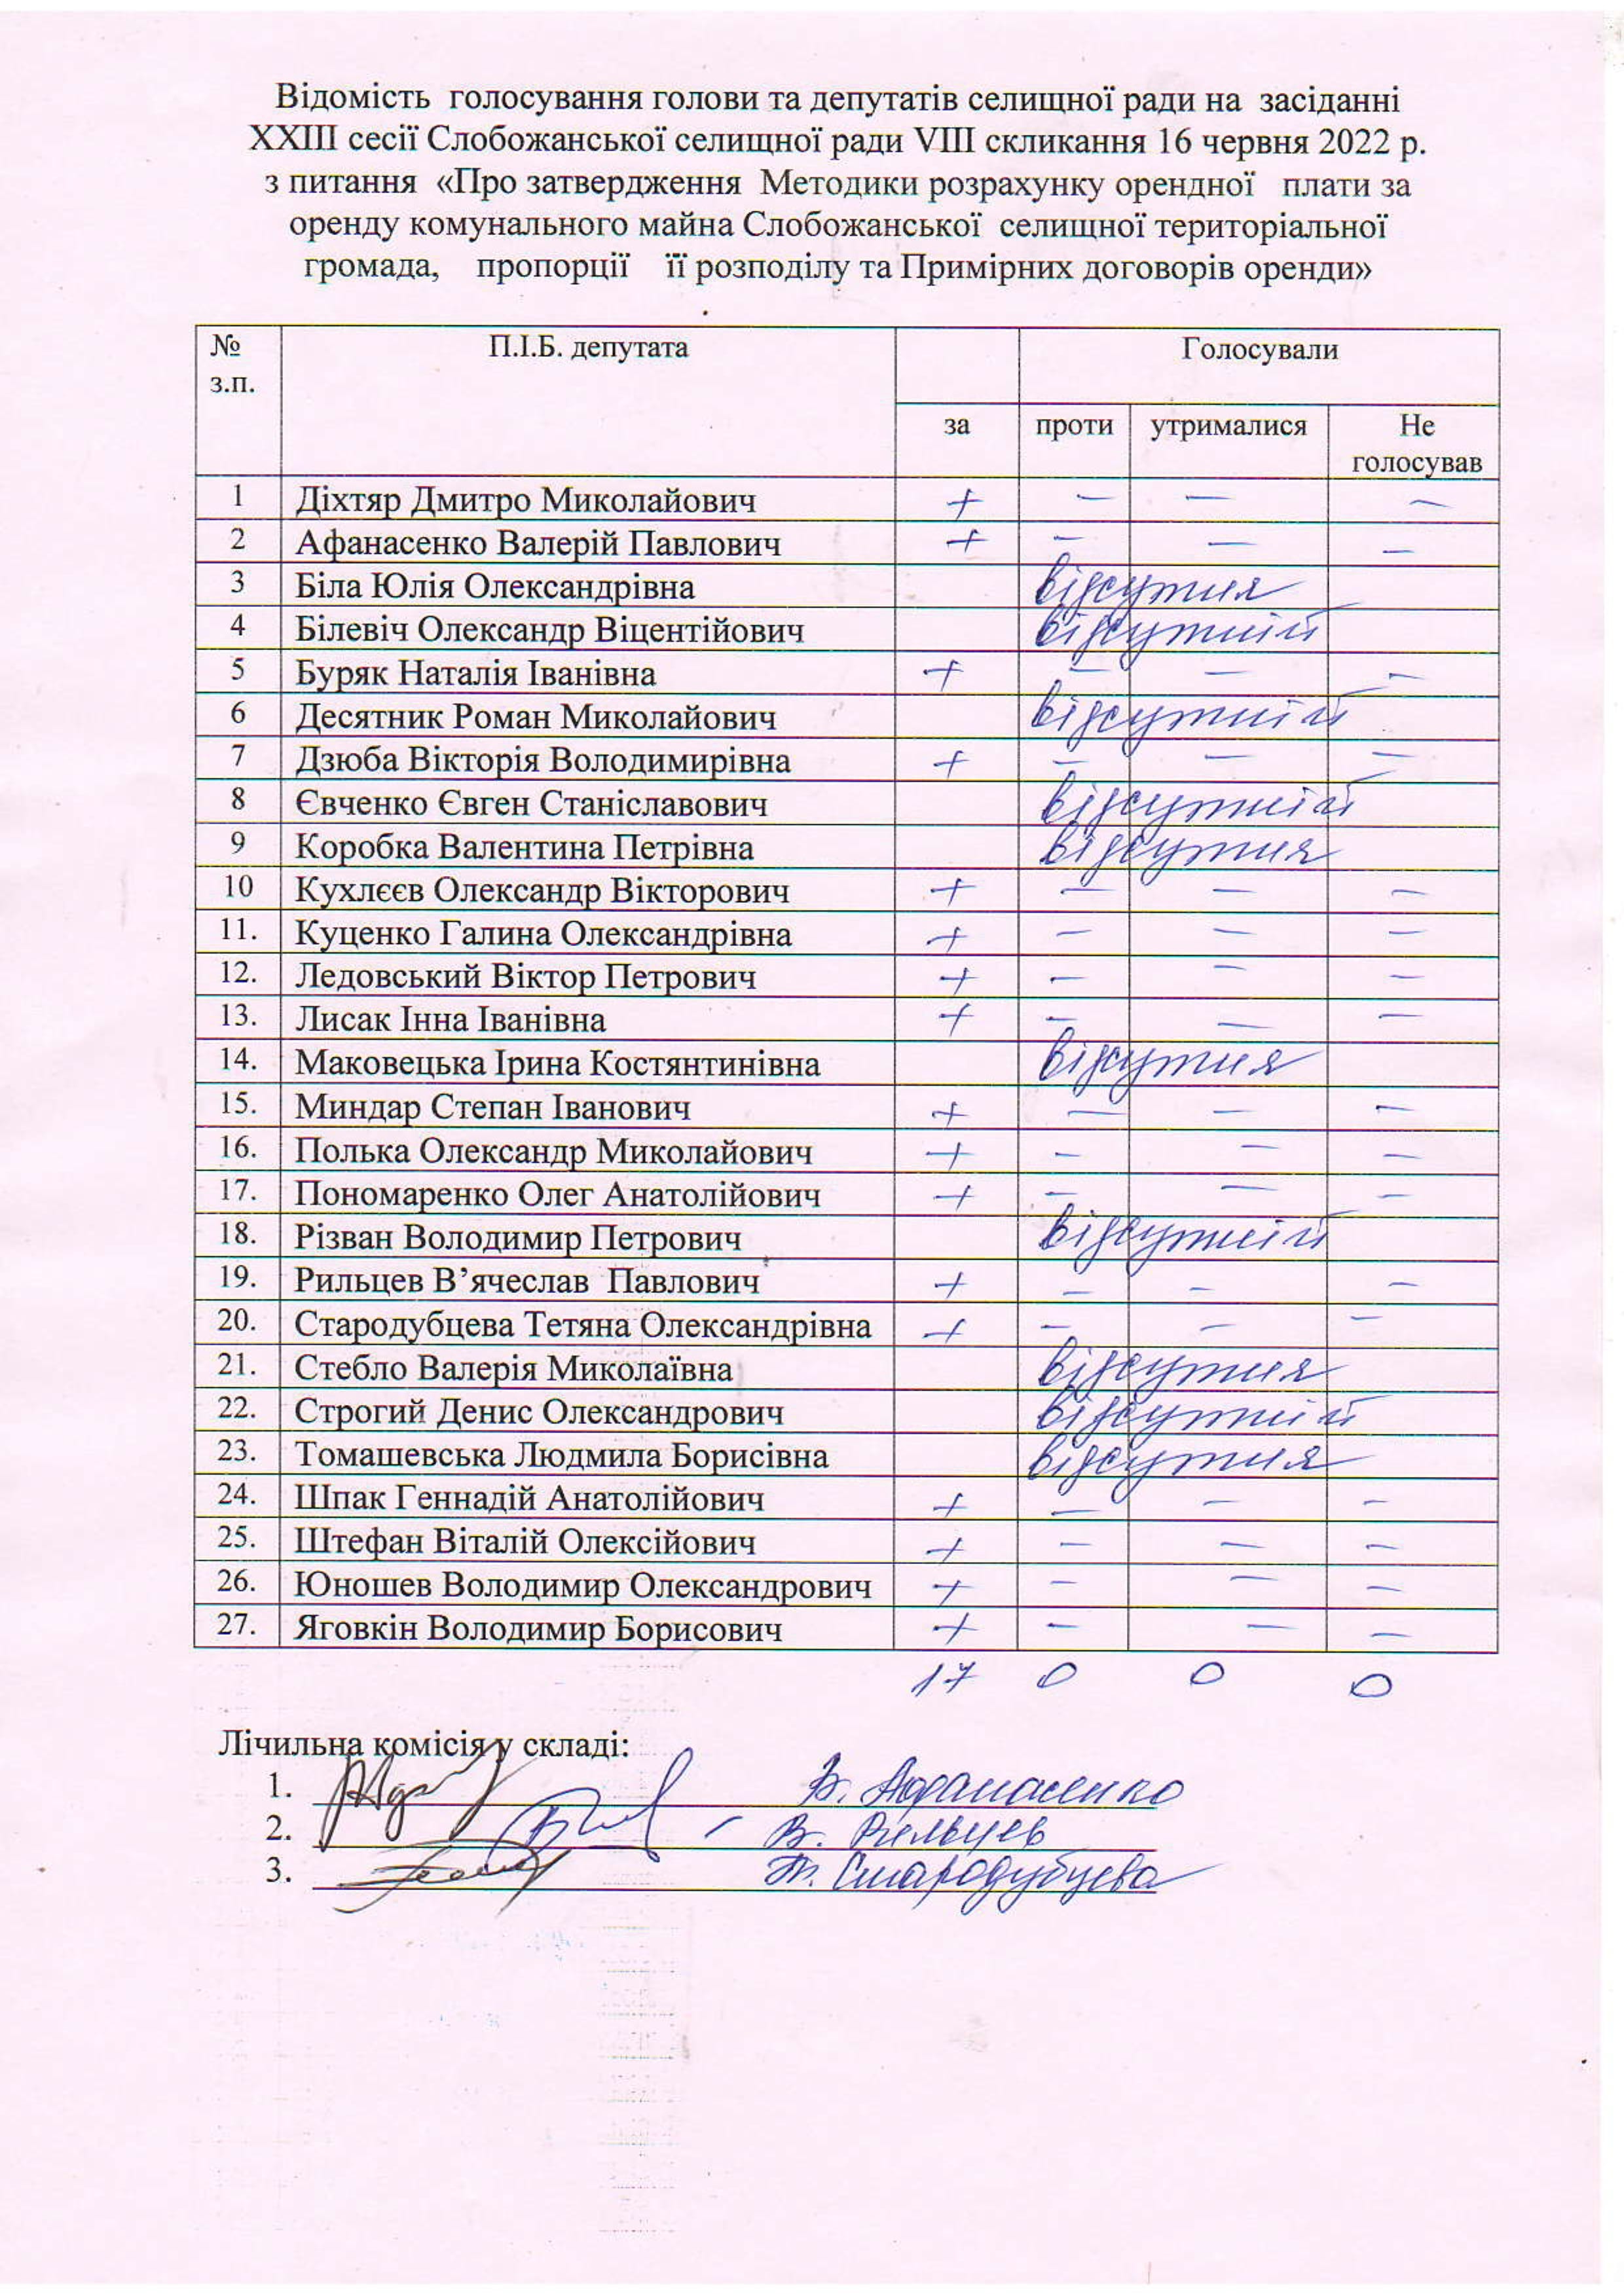 Відомість голосування голови та депутатів селищної ради на засіданні
XXIII сесії Слобожанської селищної ради VIII скликання 16 червня 2022 р.
з питання «Про затвердження Методики розрахунку орендної плати за
оренду комунального майна Слобожанської селищної територіальної
громада, пропорції її розподілу та Примірних договорів оренди»
№ з.п. П.І.Б. депутата Голосували
за проти утрималися Не голосував
1 Діхтяр Дмитро Миколайович + – – –
2 Афанасенко Валерій Павлович + – – –
3 Біла Юлія Олександрівна відсутня
4 Білевіч Олександр Віцентійович відсутній
5 Буряк Наталія Іванівна + – – –
6 Десятник Роман Миколайович відсутній
7 Дзюба Вікторія Володимирівна + – – –
8 Євченко Євген Станіславович відсутній
9 Коробка Валентина Петрівна відсутня
10 Кухлєєв Олександр Вікторович + – – –
11. Куценко Галина Олександрівна + – – –
12. Ледовський Віктор Петрович + – – –
13. Лисак Інна Іванівна + – – –
14. Маковецька Ірина Костянтинівна відсутня
15. Миндар Степан Іванович + – – –
16. Полька Олександр Миколайович + – – –
17. Пономаренко Олег Анатолійович + – – –
18. Різван Володимир Петрович відсутній
19. Рильцев В’ячеслав Павлович + – – –
20. Стародубцева Тетяна Олександрівна + – – –
21. Стебло Валерія Миколаївна відсутня
22. Строгий Денис Олександрович відсутній
23. Томашевська Людмила Борисівна відсутня
24. Шпак Геннадій Анатолійович + – – –
25. Штефан Віталій Олексійович + – – –
26. Юношев Володимир Олександрович + – – –
27. Яговкін Володимир Борисович + – – –
17 0 0 0
Лічильна комісія у складі:
1. В. Афанасенко
2. В. Рильцев
3. Т. Стародубцева